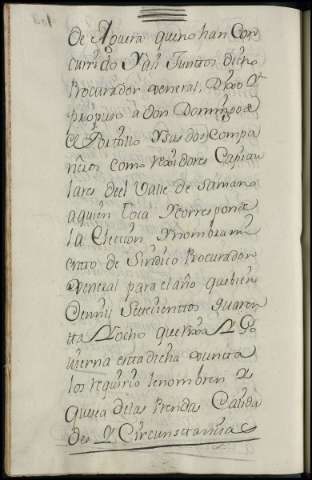 de Aguera quino han Con
currido Yasi Juntos dicho
Procurador General, Dixo Y
propuso a Don Domingo de
el Portillo Ysus dos Compa
ñeros como rexidores Capitu
lares deel Valle de Samano
aquien toca Ycorresponde
la Eleccion Ynombram
iento de Sindico Procurador
General para el año quebien
de mil Settecientos quaren
ta Y ocho que
vierna esta dicha Junta
los requirio lenombren Y
que sea delas Prendas Calida
des Y Circunstancias